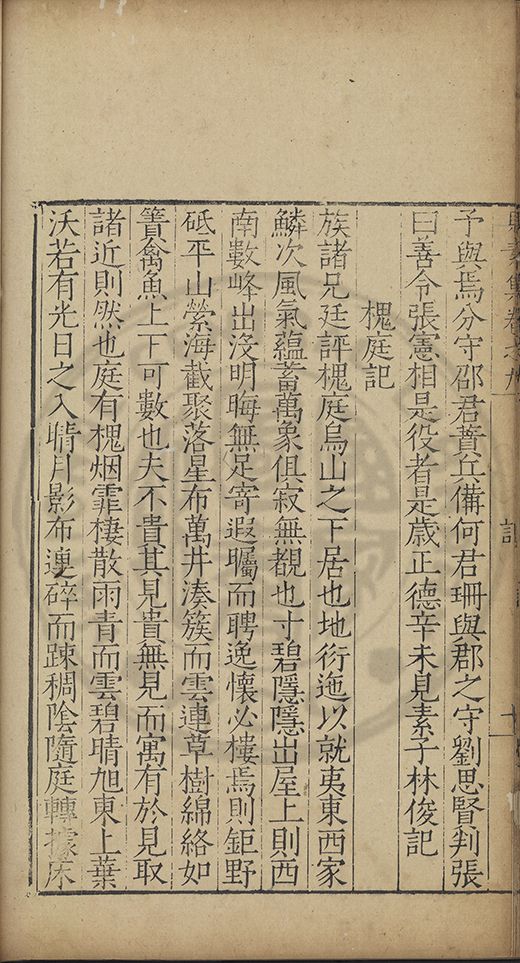 予與焉分守邵君蕡兵備何君珊與郡之守劉思賢判張
曰善令張憲相是役者是歲正德辛未見素子林俊記
槐庭記
族諸兄廷評槐庭烏山之下居也地衍迤以就夷東西家
鱗次風氣蘊蓄萬象俱寂無覩也寸碧隱隱出屋上則西
南數峰出沒明晦無足寄遐矚而聘逸懷必樓焉則鉅野
砥平山縈海截聚落星布萬井湊簇而雲連草樹綿絡如
簀禽魚上下可數也夫不貴其見貴無見而寓有於見取
諸近則然也庭有槐烟霏棲散雨青而雲碧晴旭東上葉
沃若有光日之入晴月影布連碎而踈稠陰隨庭轉據床